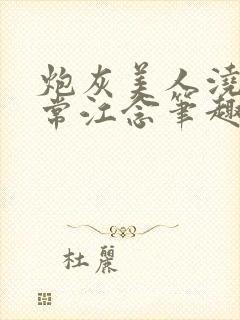 炮灰美人澆
常江念筆趣
杜麗